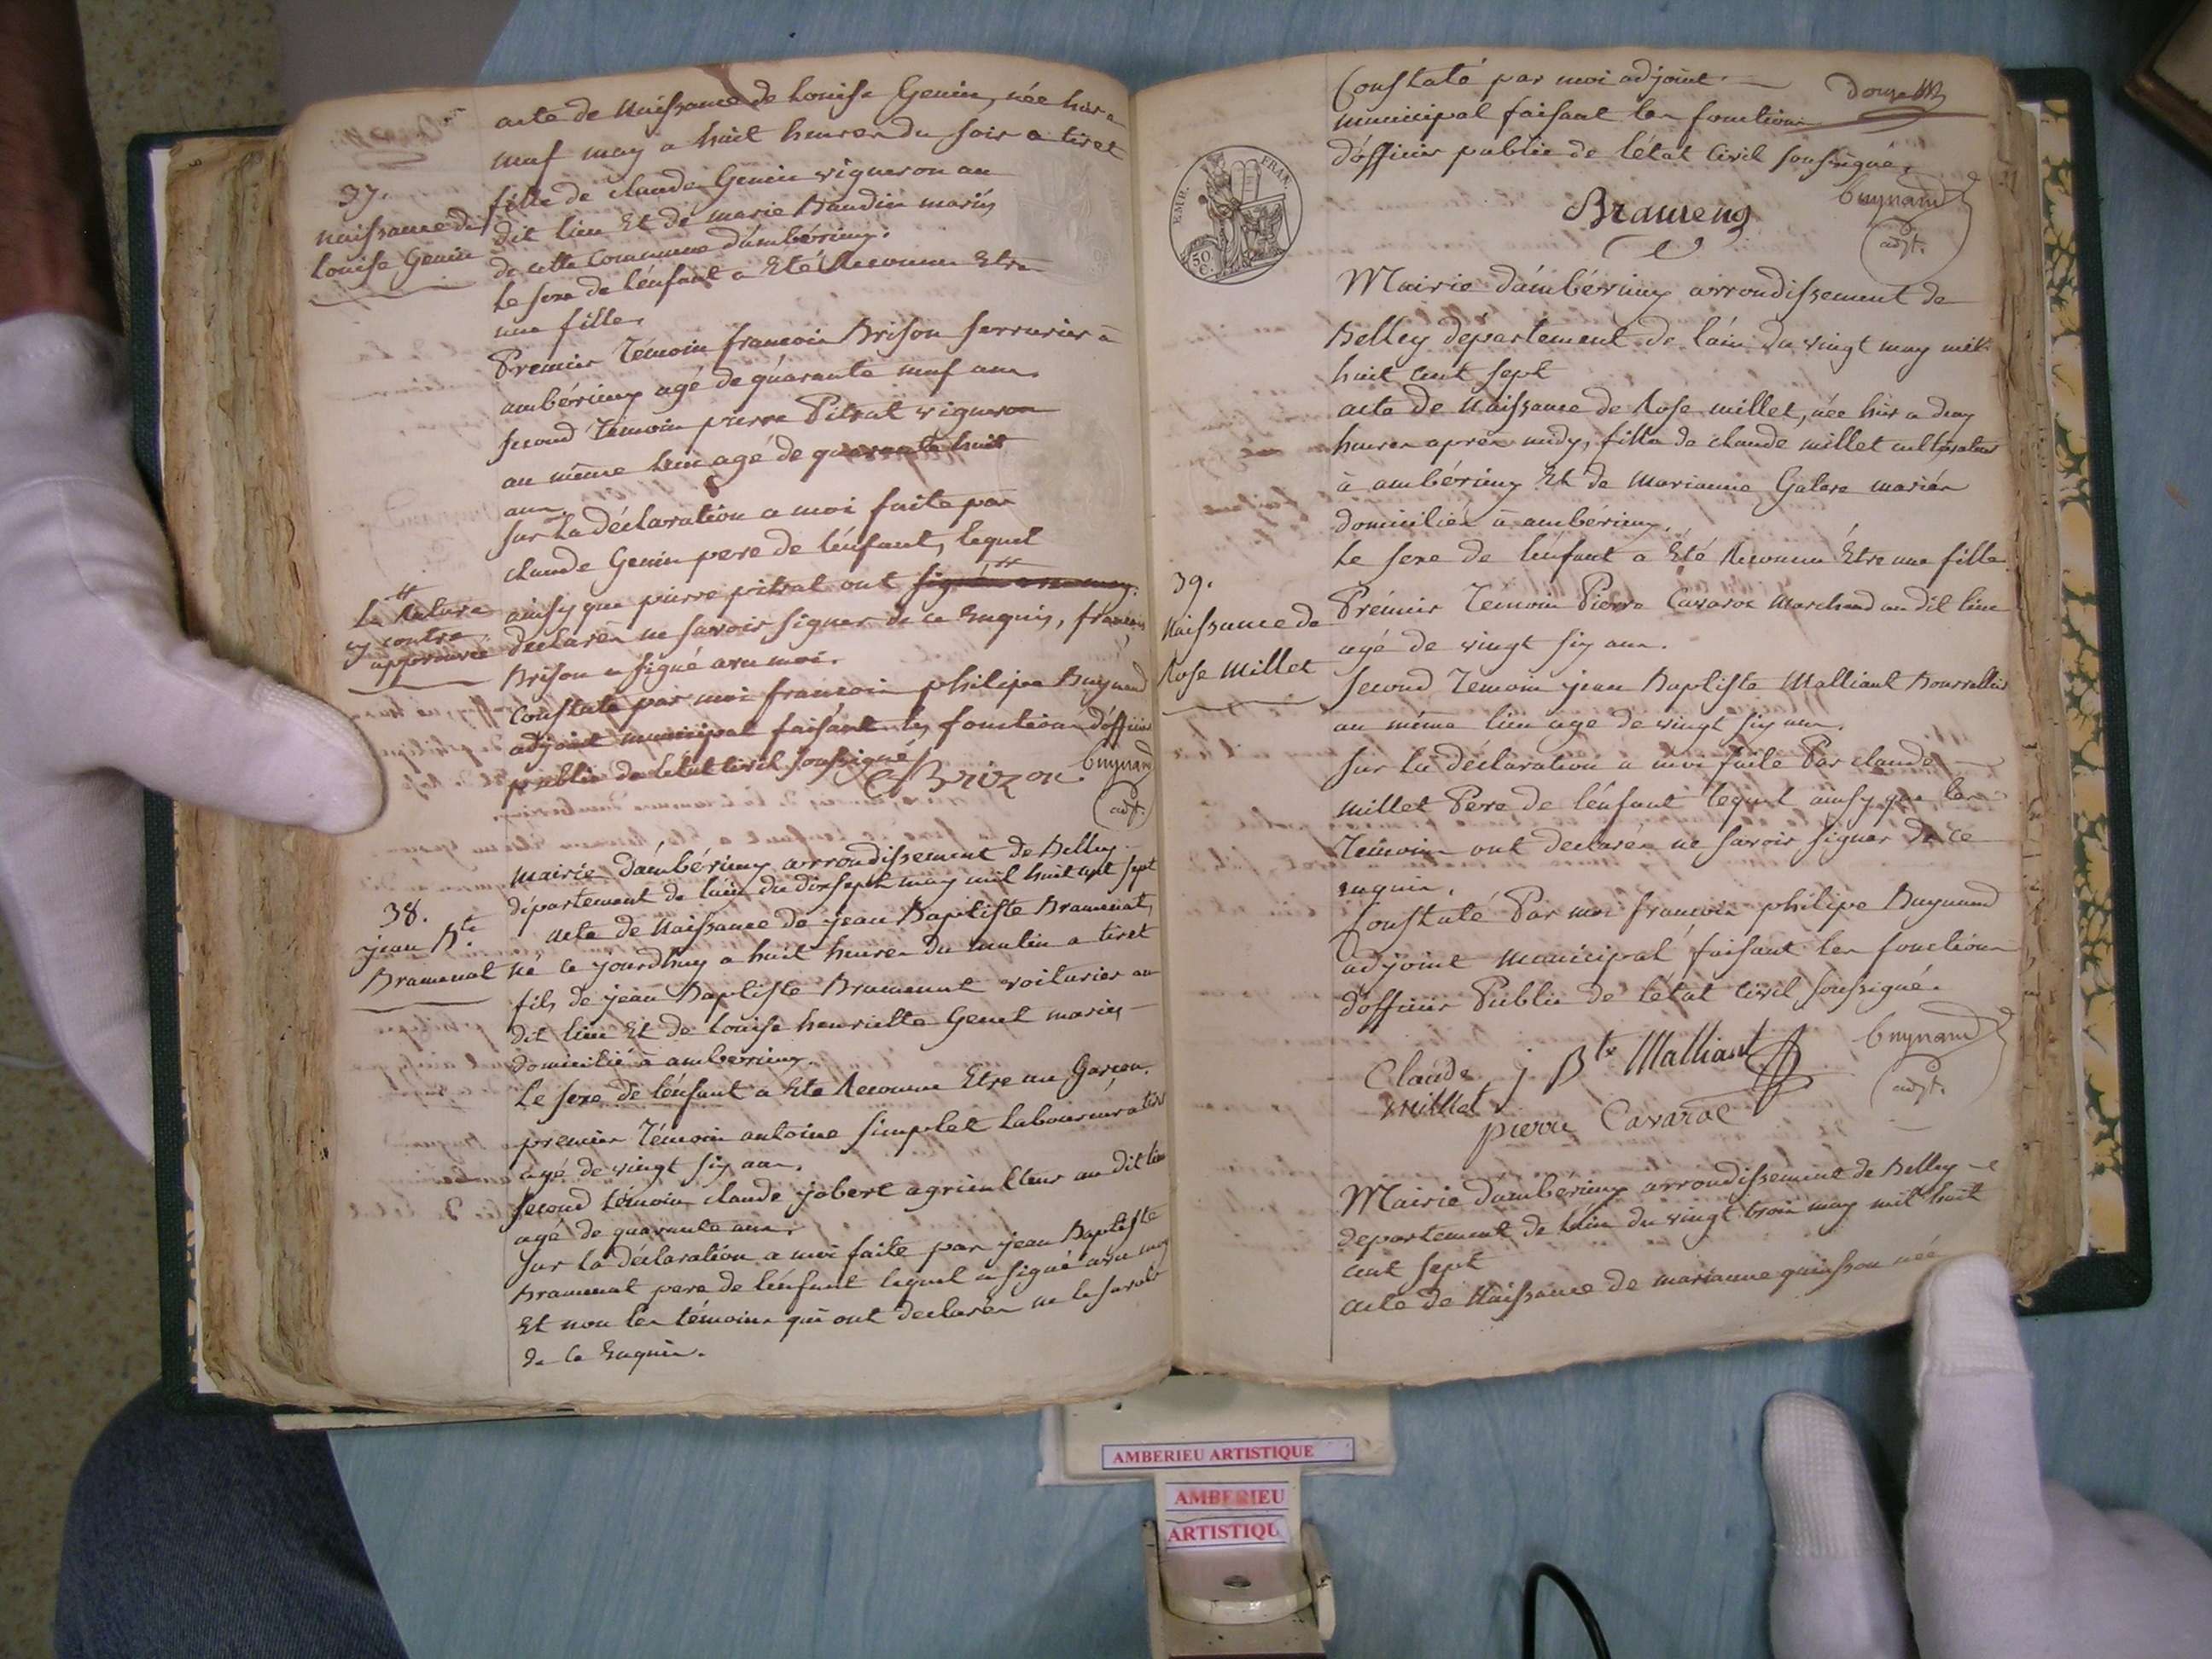 acte de Naissance de Louise Genin, née hier
neuf may a huit heures du soir a tiret
fille de claude Genin vigneron au
dit lieu Et de marie Baudin mariés
de cette Commune d'ambérieux.
Le sexe de l'énfant a Eté Reconnu Etre
une fille.
Premier Témoin francois Brison serrurier à
ambérieux agé de quarante neuf ans.
second Témoin pierre Pitrat vigneron
au même lieu agé de quarante huit
ans.
sur la déclaration a moi faite par
claude Genin pere de l'énfant, lequel
ainsy que pierre pitrat ont
declarés ne savoir signer de ce Enquis, francois
Brison a signé avec moi.
Constaté par moi francois philipe Buynand
adjoint municipal faisant les fonctions d'officier
public de l'état civil soussigné
Brizon
buynand
adjt.
37.
naissance de
Louise Genin
La Rature
cy contre
approuvée
mairie d'ambérieux arrondissement de Belley
département de l'ain du dix sept may mil huit cent sept
38.
jean Bte
Bramenat
acte de Naissance de jean Baptiste Bramenat,
né ce jourdhuy a huit heures du matin a tiret
fils de jean Baptiste Bramenat voiturier au
dit lieu Et de Louise henriette Genet mariés
domicilié à amberieux.
Le sexe de l'énfant a Eté Reconnu Etre un Garçon.
premier Témoin antoine simplet Laboureur a tiret
agé de vingt six ans.
second témoin claude jobert agriculteur au dit lieu
agé de quarante ans.
sur la déclaration a moi faite par jean Baptiste
Bramenat pere de l'énfant lequel a signé avec moy
Et non les témoins qui ont declarés ne le savoir
de ce Enquis.
Constaté par moi adjoint
municipal faisant les fonctions
d'officier public de l'état Civil soussigné.
douze
buynand
adjt.
EMP. FRAN.
50
C.
Mairie d'ambérieux arrondissement de
Belley département de l'ain du vingt may mil
huit cent sept
acte de Naissance de Rose millet, née hier a deux
heures aprés midy, fille de claude millet cultivateur
à ambérieux Et de Marianne Galere mariés
domiciliés à ambérieux.
Le sexe de l'énfant a Eté Reconnu Etre une fille
39.
Naissance de
Rose Millet
Prémier Temoin Pierre Cavaroc Marchand au dit lieu
agé de vingt six ans.
second Temoin jean Baptiste Malliant Bourrellier
au même lieu age de vingt six ans.
sur la déclaration a moi faite Par claude
millet Pere de l'énfant lequel ainsy que les
Témoins ont declarés ne savoir signer de ce
enquis.
Constaté Par moi francois philipe Buynand
adjoint Municipal faisant les fonctions
d'officier Public de l'état Civil soussigné.
Claude
millet
j Bte Malliant
buynand
adjt.
pierre Cavaroc
Mairie d'ambérieux arrondissement de Belley
departement de l'ain du vingt trois may mil huit
cent sept
acte de Naissance de marianne quinson née
AMBERIEU ARTISTIQUE
AMBERIEU
ARTISTIQU